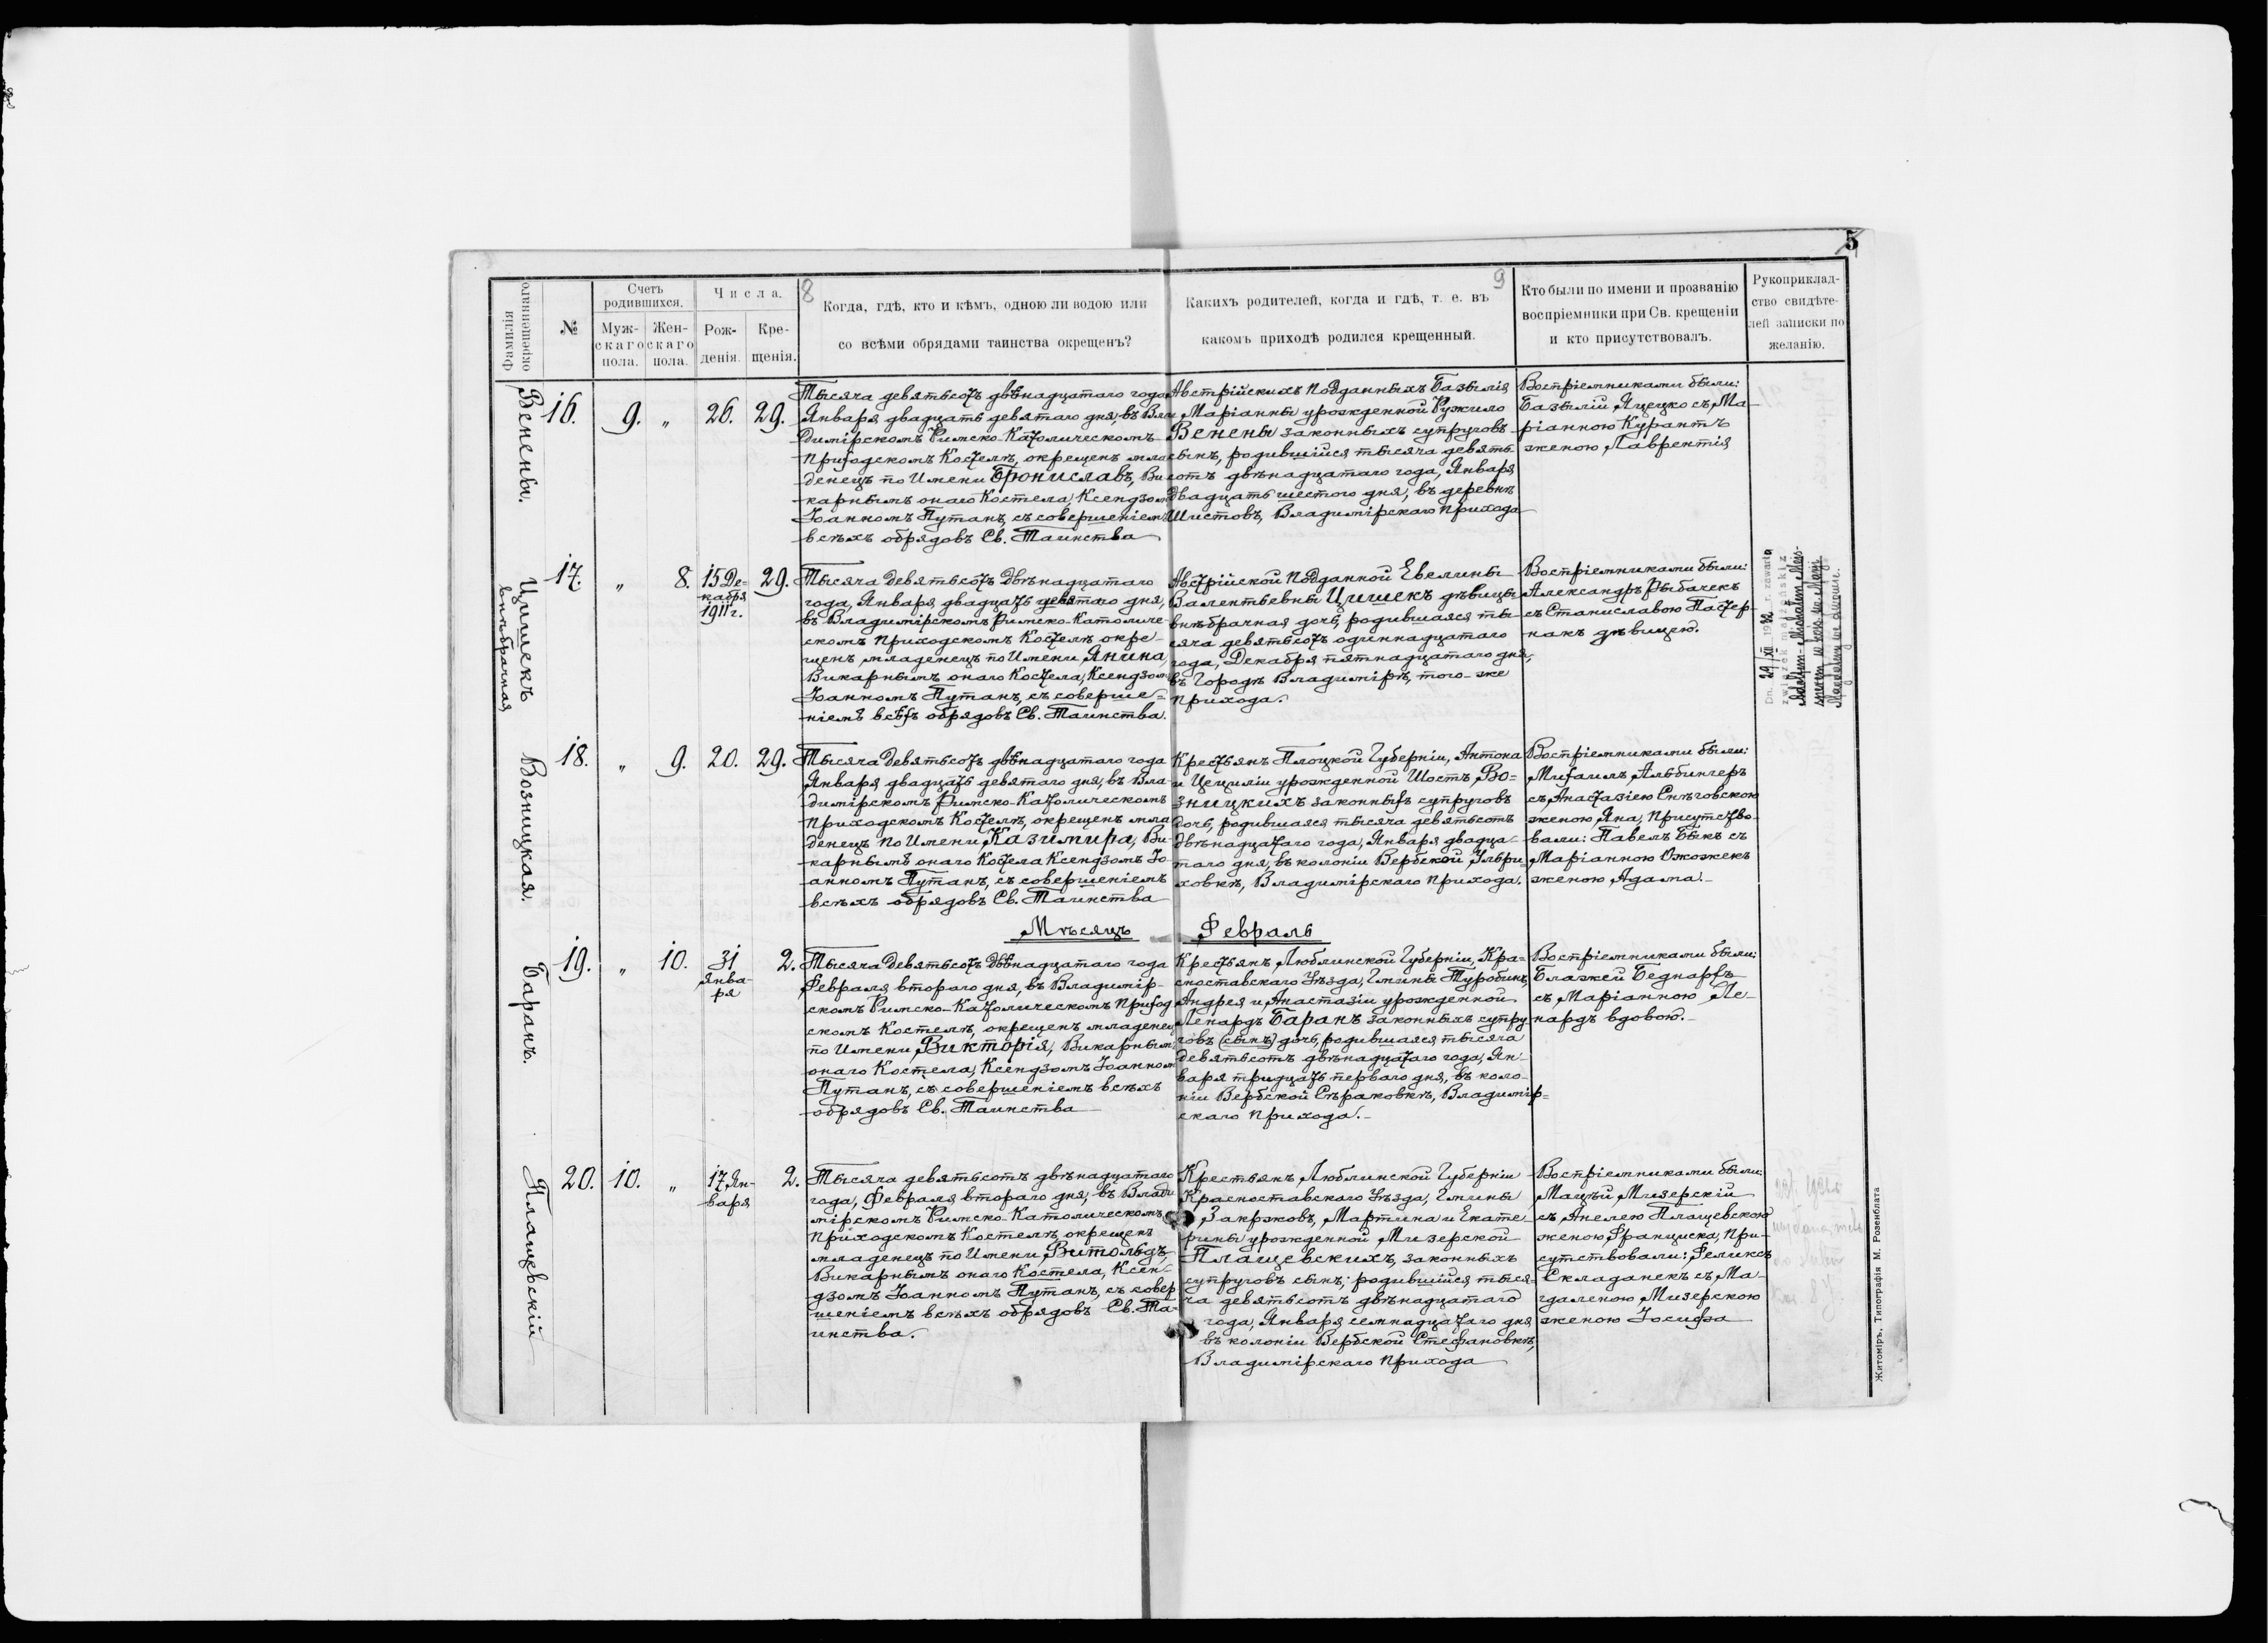 5
8
9
Фамилія
окрещеннаго
№
Счетъ
родившихся.
Муж-
скаго
пола.
Жен-
скаго
пола.
Числа.
Рож-
денія.
Кре-
щенія.
Когда, гдѣ, кто и кѣмъ, одною ли водою или
со всѣми обрядами таинства окрещенъ?
Какихъ родителей, когда и гдѣ, т. е. въ
какомъ приходѣ родился крещенный.
Кто были по имени и прозванію
воспріемники при Св. крещеніи
и кто присутствовалъ.
Рукоприклад-
ство свидѣте-
лей записки по
желанію.
Венены.
16.
9.
„
26.
29.
Тысяча девятьсотъ двѣнадцатаго года
Января двадцать девятаго дня, въ Вла
димірскомъ Римско-Католическомъ
Приходскомъ Костелѣ, окрещенъ мла
денецъ по Имени Брониславъ, Ви
карнымъ онаго Костела, Ксендзомъ
Іоанномъ Путанъ, съ совершеніемъ
всѣхъ обрядовъ Св. Таинства
Австрійскихъ Подданныхъ Базылія
и Маріанны урожденной Ружило
Венены законныхъ супруговъ
сынъ, родившійся тысяча девять
сотъ двѣнадцатаго года, Января
двадцать шестого дня, въ деревнѣ
Шистовъ, Владимірскаго прихода
Востріемниками были:
Базылій Яцецко съ Ма-
ріанною Курантъ
женою Лаврентія
Цишекъ
внѣбрачная
17.
„
8.
15 Де-
кабря
1911 г.
29.
Тысяча девятьсотъ двѣнадцатаго
года, Января двадцать девятаго дня,
въ Владимірскомъ Римско-Католиче-
скомъ Приходскомъ Костелѣ окре-
щенъ младенецъ по Имени Янина,
Викарнымъ онаго Костела, Ксендзомъ
Іоанномъ Путанъ, съ соверше-
ніемъ всѣхъ обрядовъ Св. Таинства.
Австрійской Подданной Евелины
Валентьевны Цишекъ дѣвицы
внѣбрачная дочь, родившаяся ты-
сяча девятьсотъ одиннадцатаго
года, Декабря пятнадцатаго дня,
въ Городѣ Владимірѣ, того-же
прихода.
Востріемниками были:
Александръ Рыбачекъ
съ Станиславою Пастер-
накъ дѣвицею.
Dn. 29/XII 1932 r. zawarła
związek małżeński z
Adolfem-Michałem
Возницкая.
18.
„
9.
20.
29.
Тысяча девятьсотъ двѣнадцатаго года
Января двадцать девятаго дня, въ Вла-
димірскомъ Римско-Католическомъ
Приходскомъ Костелѣ, окрещенъ мла
денецъ по Имени Казимира, Ви-
карнымъ онаго Костела Ксендзомъ Іо-
анномъ Путанъ, съ совершеніемъ
всѣхъ обрядовъ Св. Таинства
Крестьянъ Плоцкой Губерніи, Антона
и Цециліи урожденной Шостъ, Во-
зницкихъ законныхъ супруговъ
дочь, родившаяся тысяча девятьсотъ
двѣнадцатаго года, Января двадца-
таго дня, въ колоніи Вербской Ульри-
ховкѣ, Владимірскаго прихода.
Востріемниками были:
Михаилъ Альбингеръ
съ Анастазіею Снѣговскою
женою Яна, Присутство-
вали: Павелъ Быкъ съ
Маріанною Ожожекъ
женою Адама.
Мѣсяцъ Февраль
Баранъ.
19.
„
10.
31
Янва-
ря
2.
Тысяча девятьсотъ двѣнадцатаго года
Февраля второго дня, въ Владимір-
скомъ Римско-Католическомъ Приход
скомъ Костелѣ, окрещенъ младенецъ
по Имени Викторія, Викарнымъ
онаго Костела, Ксендзомъ Іоанномъ
Путанъ, съ совершеніемъ всѣхъ
обрядовъ Св. Таинства
Крестьянъ Люблинской Губерніи, Кра-
сноставскаго Уѣзда, Гмины Туробинъ,
Андрея и Анастазіи урожденной
Ленардъ Баранъ законныхъ супру-
говъ (сынъ) дочь, родившаяся тысяча
девятьсотъ двѣнадцатаго года, Ян-
варя тридцать перваго дня, въ коло-
ніи Вербской Сѣраковкѣ, Владимір-
скаго прихода.
Востріемниками были:
Блажей Беднаръ
съ Маріанною Ле-
нардъ вдовою.
Плащевскій
20.
10.
„
17 Ян-
варя
2.
Тысяча девятьсотъ двѣнадцатаго
года, Февраля второго дня, въ Влади
мірскомъ Римско-Католическомъ
Приходскомъ Костелѣ, окрещенъ
младенецъ по Имени Витольдъ,
Викарнымъ онаго Костела, Ксен-
дзомъ Іоанномъ Путанъ, съ совер
шеніемъ всѣхъ обрядовъ Св. Та-
инства.
Крестьянъ Люблинской Губерніи
Красноставскаго Уѣзда, Гмины
Закржовъ, Мартина и Екате-
рины урожденной Мизерской
Плащевскихъ, законныхъ
супруговъ сынъ, родившійся тыся-
ча девятьсотъ двѣнадцатаго
года, Января семнадцатаго дня
въ колоніи Вербской Стефановкѣ,
Владимірскаго прихода
Востріемниками были:
Мацѣй Мизерскій
съ Анелею Плащевскою
женою Франциска, При-
сутствовали: Феликсъ
Складанекъ съ Ма-
гдаленою Мизерскою
женою Іосифа
Житоміръ, Типографія М. Розенблата